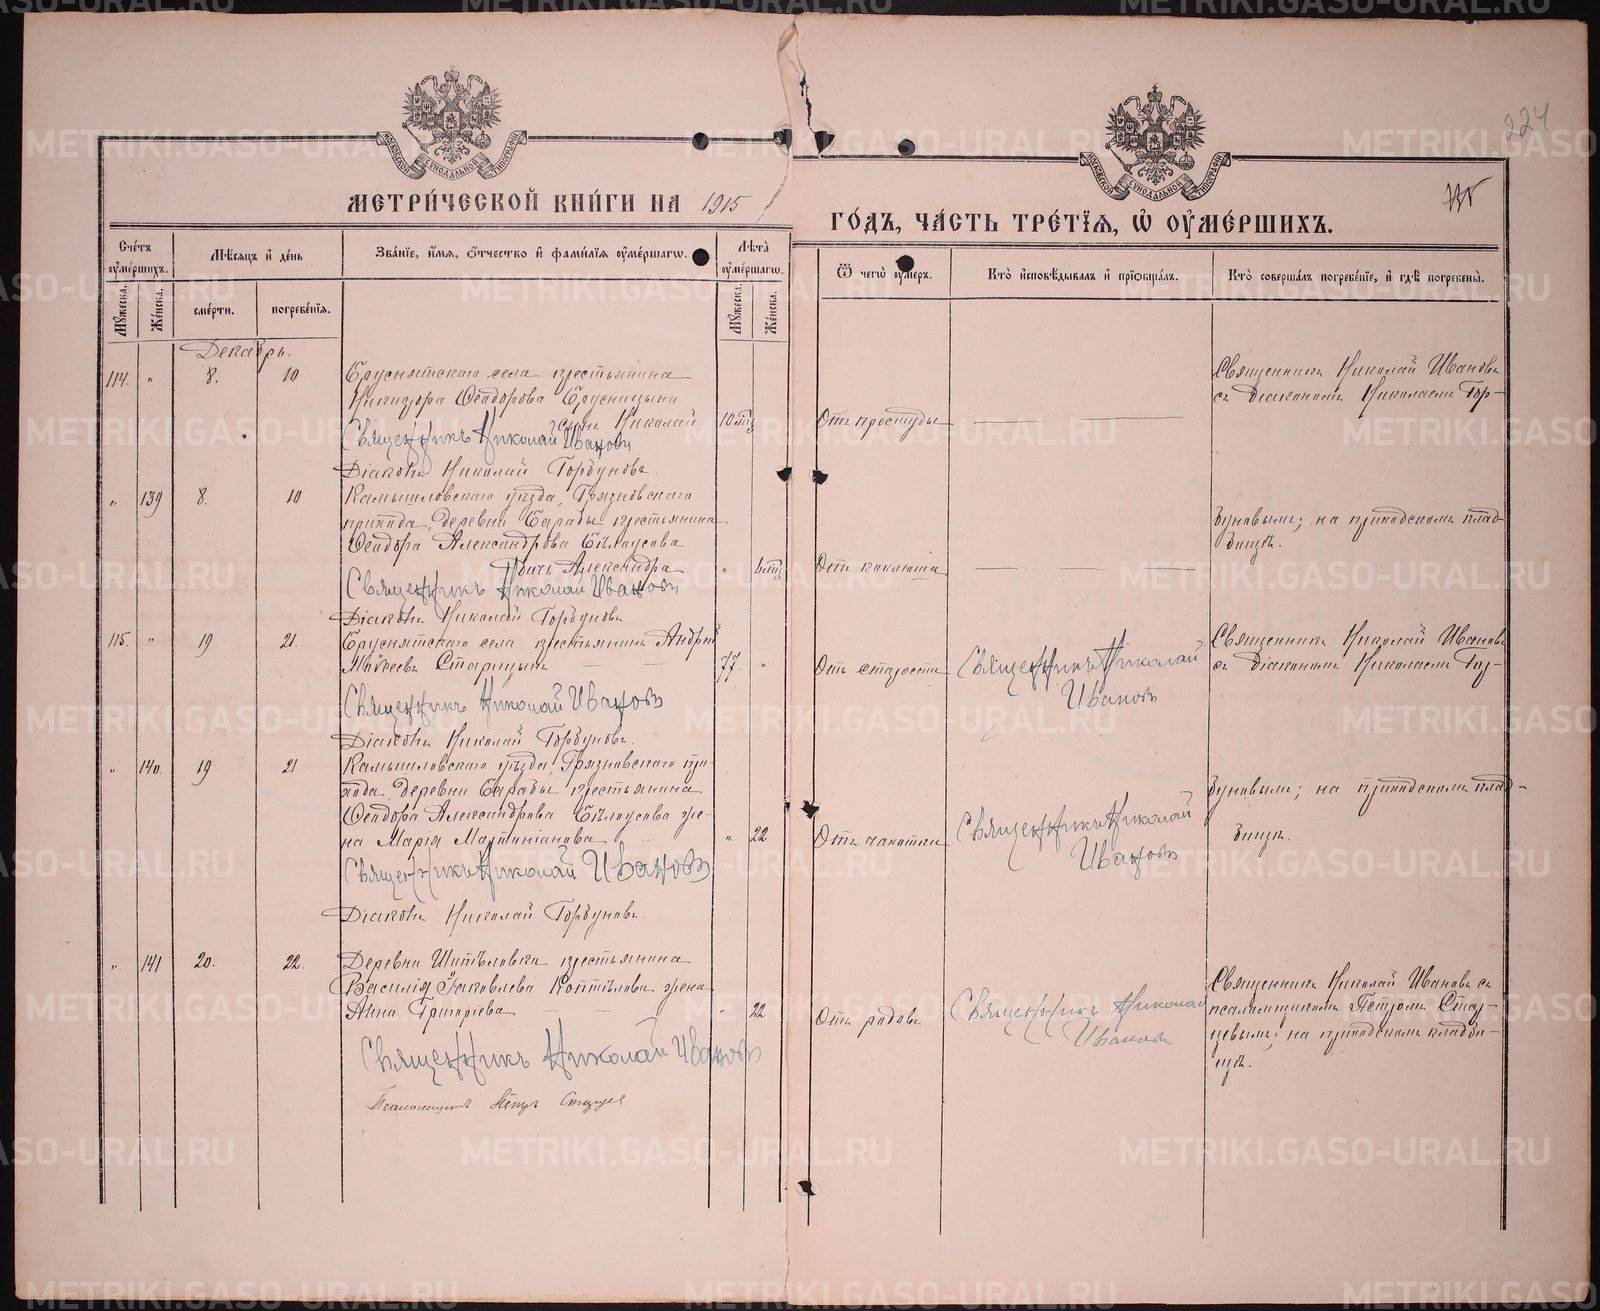 224
МЕТРИЧЕСКОЙ КНИГИ НА 1915
ГОДЪ, ЧАСТЬ ТРЕТІЯ, Ѡ ОУМЕРШИХЪ.
Счетъ оумершихъ.
Мѣсяцъ и день
Званіе, имя, отчество и фамилія оумершагѡ.
Лѣта оумершагѡ.
Ѿ чегѡ оумеръ.
Кто исповѣдывалъ и пріобщалъ.
Кто совершалъ погребеніе, и гдѣ погребены.
Мужеска.
Женска.
смерти.
погребенія.
Мужеска.
Женска.
Декабрь.
114. " 8. 10
Бруснятскаго села крестьянина
Никифора Ѳеодорова Брусницына
сынъ Николай 10 мц
Отъ простуды
Священникъ Николай Ивановъ
съ Діакономъ Николаемъ Гор-
Священникъ Николай Ивановъ
Діаконъ Николай Горбуновъ.
" 139 8. 10
Камышловскаго уѣзда, Грязновскаго
прихода, деревни Барабы крестьянина
Ѳеодора Александрова Бѣлоусова
дочь Александра " 6 мц
Отъ коклюша
буновымъ; на приходскомъ клад-
бищѣ.
Священникъ Николай Ивановъ
Діаконъ Николай Горбуновъ
115. " 19 21.
Бруснятскаго села крестьянинъ Андрей
Старицынъ 77. "
Отъ старости
Священникъ Николай
Ивановъ
Священникъ Николай Ивановъ
съ Діакономъ Николаемъ Гор-
Священникъ Николай Ивановъ
Діаконъ Николай Горбуновъ.
" 140. 19 21.
Камышловскаго уѣзда, Грязновскаго при-
хода, деревни Барабы крестьянина
Ѳеодора Александрова Бѣлоусова же-
на Марія Мартиніанова " 22
Отъ чахотки
Священникъ Николай
Ивановъ
буновымъ; на приходскомъ клад-
бищѣ.
Священникъ Николай Ивановъ
Діаконъ Николай Горбуновъ.
" 141 20. 22.
Деревни Шипѣловки крестьянина
Василія Іаковлева Коптѣлова жена
Анна Григоріева " 22
Отъ родовъ
Священникъ Николай
Ивановъ
Священникъ Николай Ивановъ съ
псаломщикомъ Петромъ Стар-
цевымъ; на приходскомъ кладби-
щѣ.
Священникъ Николай Ивановъ
Псаломщикъ Петръ Старцевъ
METRIKI.GASO-URAL.RU